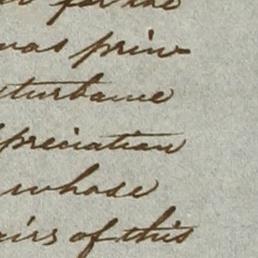 for the
was prin
sturbance
ppreciation
whose
airs of this